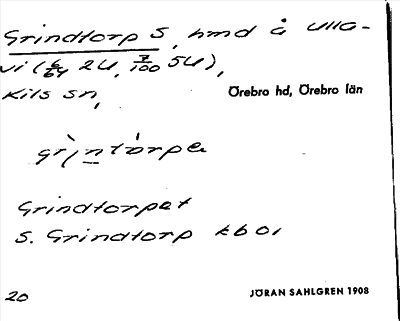 Grindtorp S, hmd å Ulla-
vi (6/64 2U, 7/100 5U),
Kils sn,
Örebro hd, Örebro län
grìntòrpa
Grindtorpet
S. Grindtorp kb 01
20
JÖRAN SAHLGREN 1908